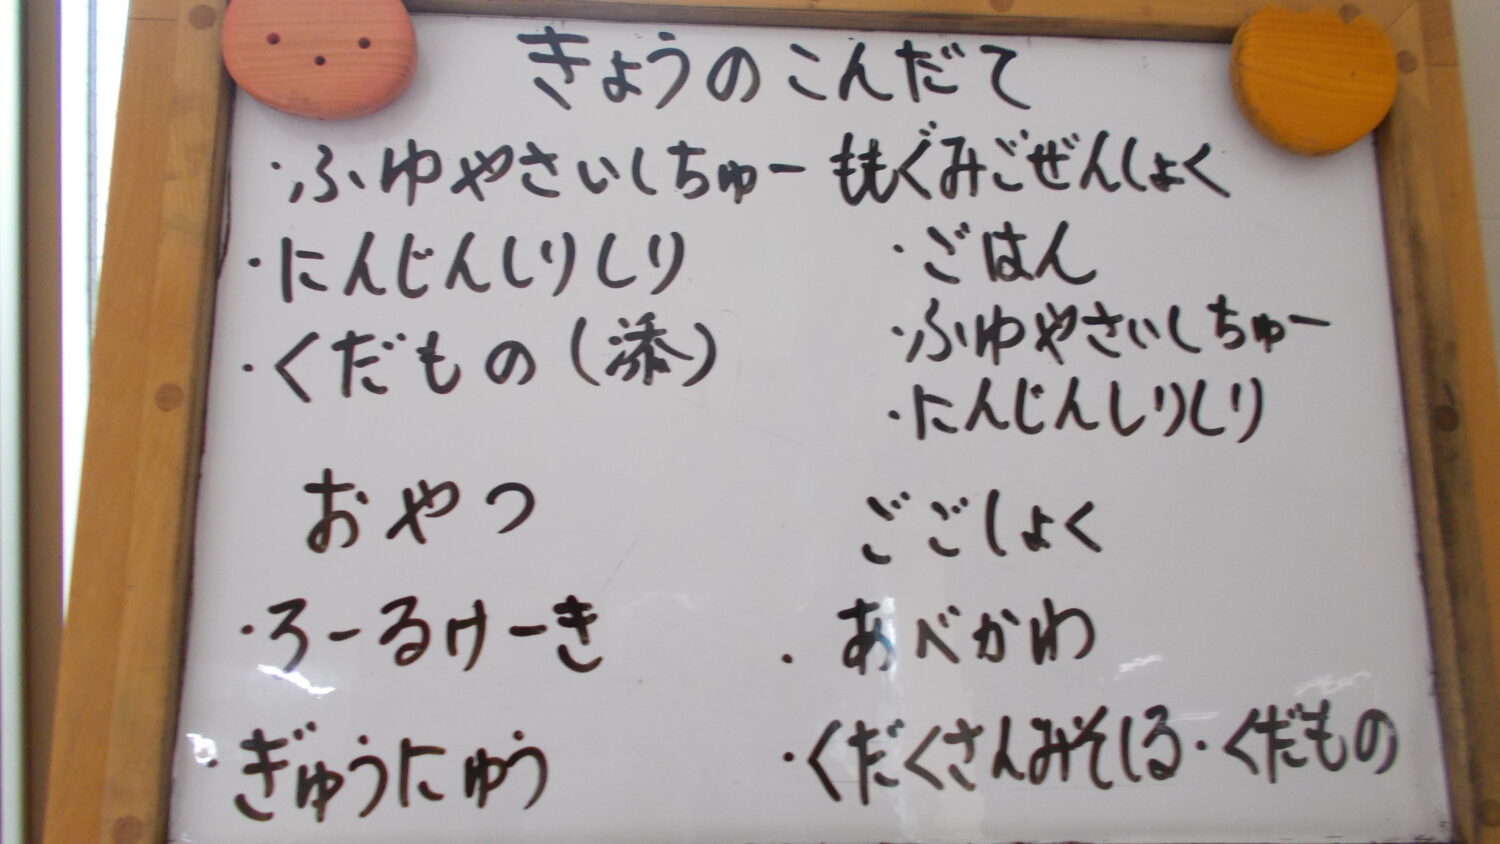 きょうのこんだて
・ふゆやさいしちゅー
・にんじんしりしり
・くだもの(添)
おやつ
・ろーるけーき
・ぎゅうにゅう
ももぐみごぜんしょく
・ごはん
・ふゆやさいしちゅー
・にんじんしりしり
ごごしょく
・あべかわ
・くだくさんみそしる・くだもの